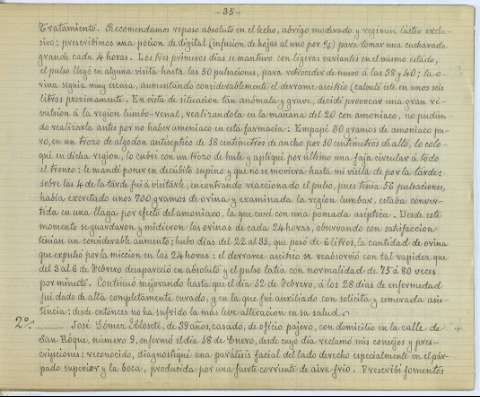 - 35 -
Tratamiento. Recomendamos reposo absoluto en el lecho, abrigo moderado y regimen lácteo exclu-
sivo; prescribimos una pocion de digital (infusion de hojas al uno por %) para tomar una cucharada
grande cada 4 horas. Los tres primeros dias se mantuvo con ligeras variantes en el mismo estado,
el pulso llegó en alguna visita hasta las 50 pulsaciones, para retroceder de nuevo á las 38 y 40; la o-
rina seguia muy escasa, aumentando considerablemente el derrame ascítico (calculé este en unos seis
litros proximamente. En vista de situacion tan anómala y grave, decidí provocar una gran re-
vulsion á la region lumbo-renal, realizándola en la mañana del 20 con amoniaco, no pudien-
do realizarla antes por no haber amoniaco en esta farmacia: Empapé 80 gramos de amoniaco pu-
ro, en un trozo de algodon antiséptico de 18 centímetros de ancho por 10 centímetros de alto, lo colo-
qué en dicha region, lo cubrí con un trozo de hule y apliqué por último una faja circular á todo
el tronco: le mandé poner en decúbito supino y que no se moviera hasta mi visita de por la tarde;
sobre las 4 de la tarde fuí á visitarle, encontrando reaccionado el pulso, pues tenia 56 pulsaciones,
habia excretado unos 700 gramos de orina y examinada la region lumbar, estaba conver-
tida en una llaga por efecto del amoniaco, la que curé con una pomada aséptica. Desde este
momento se guardaron y midieron las orinas de cada 24 horas, observando con satisfaccion
tenian un considerable aumento; hubo dias del 22 al 33, que pasó de 6 litros, la cantidad de orina
que expulsó por la miccion en las 24 horas: el derrame ascítico se reabsorvió con tal rapidez que
del 3 al 6 de Febrero desapareció en absoluto y el pulso latía con normalidad de 75 á 80 veces
por minuto. Continuó mejorando hasta que el dia 12 de Febrero, á los 28 dias de enfermedad
fué dado de alta completamente curado, y en la que fuí auxiliado con solícita y esmerada asis-
tencia: desde entonces no ha sufrido la mas leve alteracion en su salud.
2º: José Gómez, de 39 años, casado, de oficio pajero, con domicilio en la calle de
San Roque, número 9, enfermó el dia 18 de Enero, desde cuyo dia reclamó mis consejos y pres-
cripciones: reconocido, diagnostiqué una parálisis facial del lado derecho especialmente en el pár-
pado superior y la boca, producida por una fuerte corriente de aire frio. Prescribí fomentos